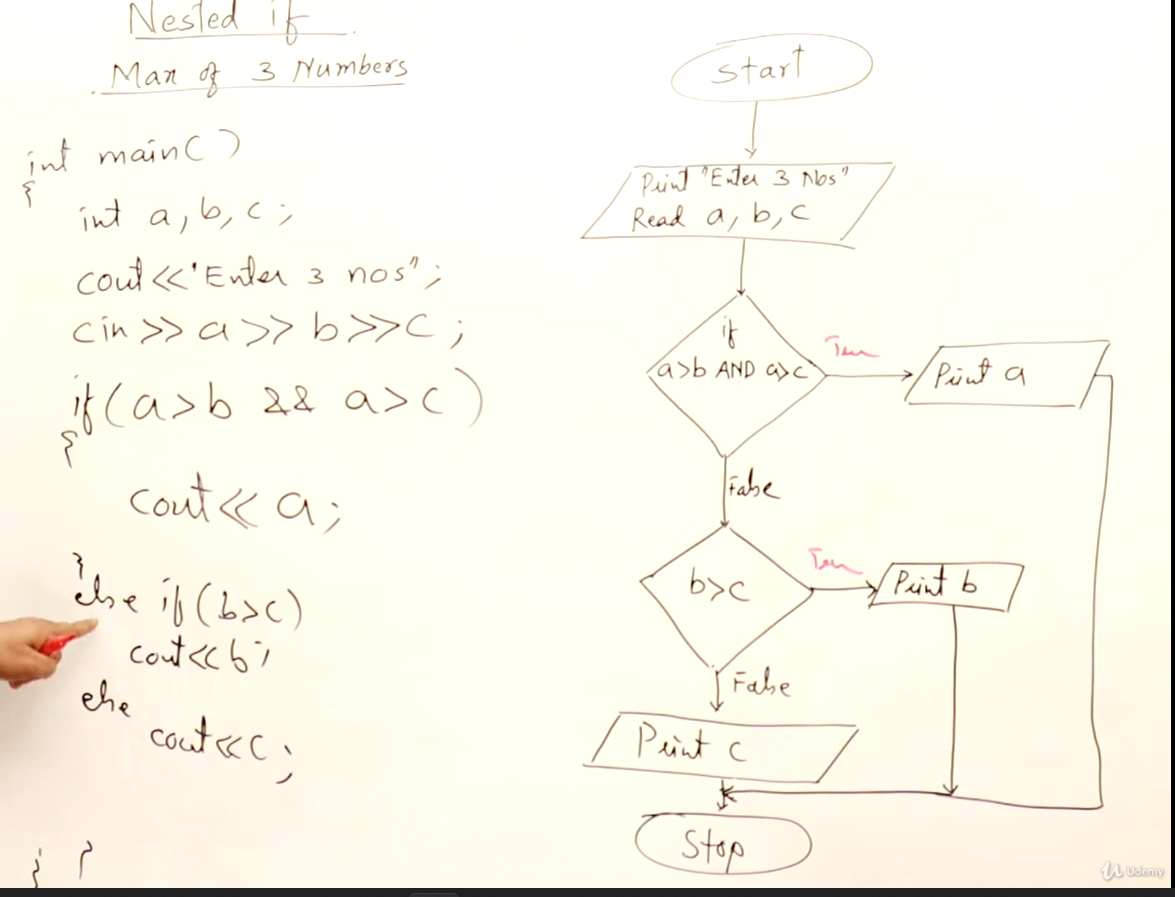 Nested if
Max of 3 Numbers
int main()
{
int a, b, c;
cout<<'Enter 3 nos";
cin>>a>>b>>c;
if(a>b && a>c)
{
cout<<a;
}
else if(b>c)
cout<<b;
else
cout<<c;
} }
Start
Print "Enter 3 Nos"
Read a, b, c
if
a>b AND a>c
True
Print a
False
b>c
True
Print b
False
Print c
Stop
Udemy